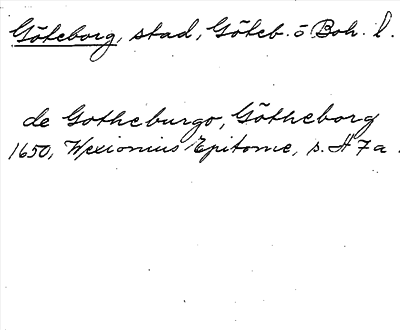 Göteborg, stad, Göteb. o Boh. l.
de Gotheburgo, Götheborg
1650, Wexionius Epitome, s. H 7 a.